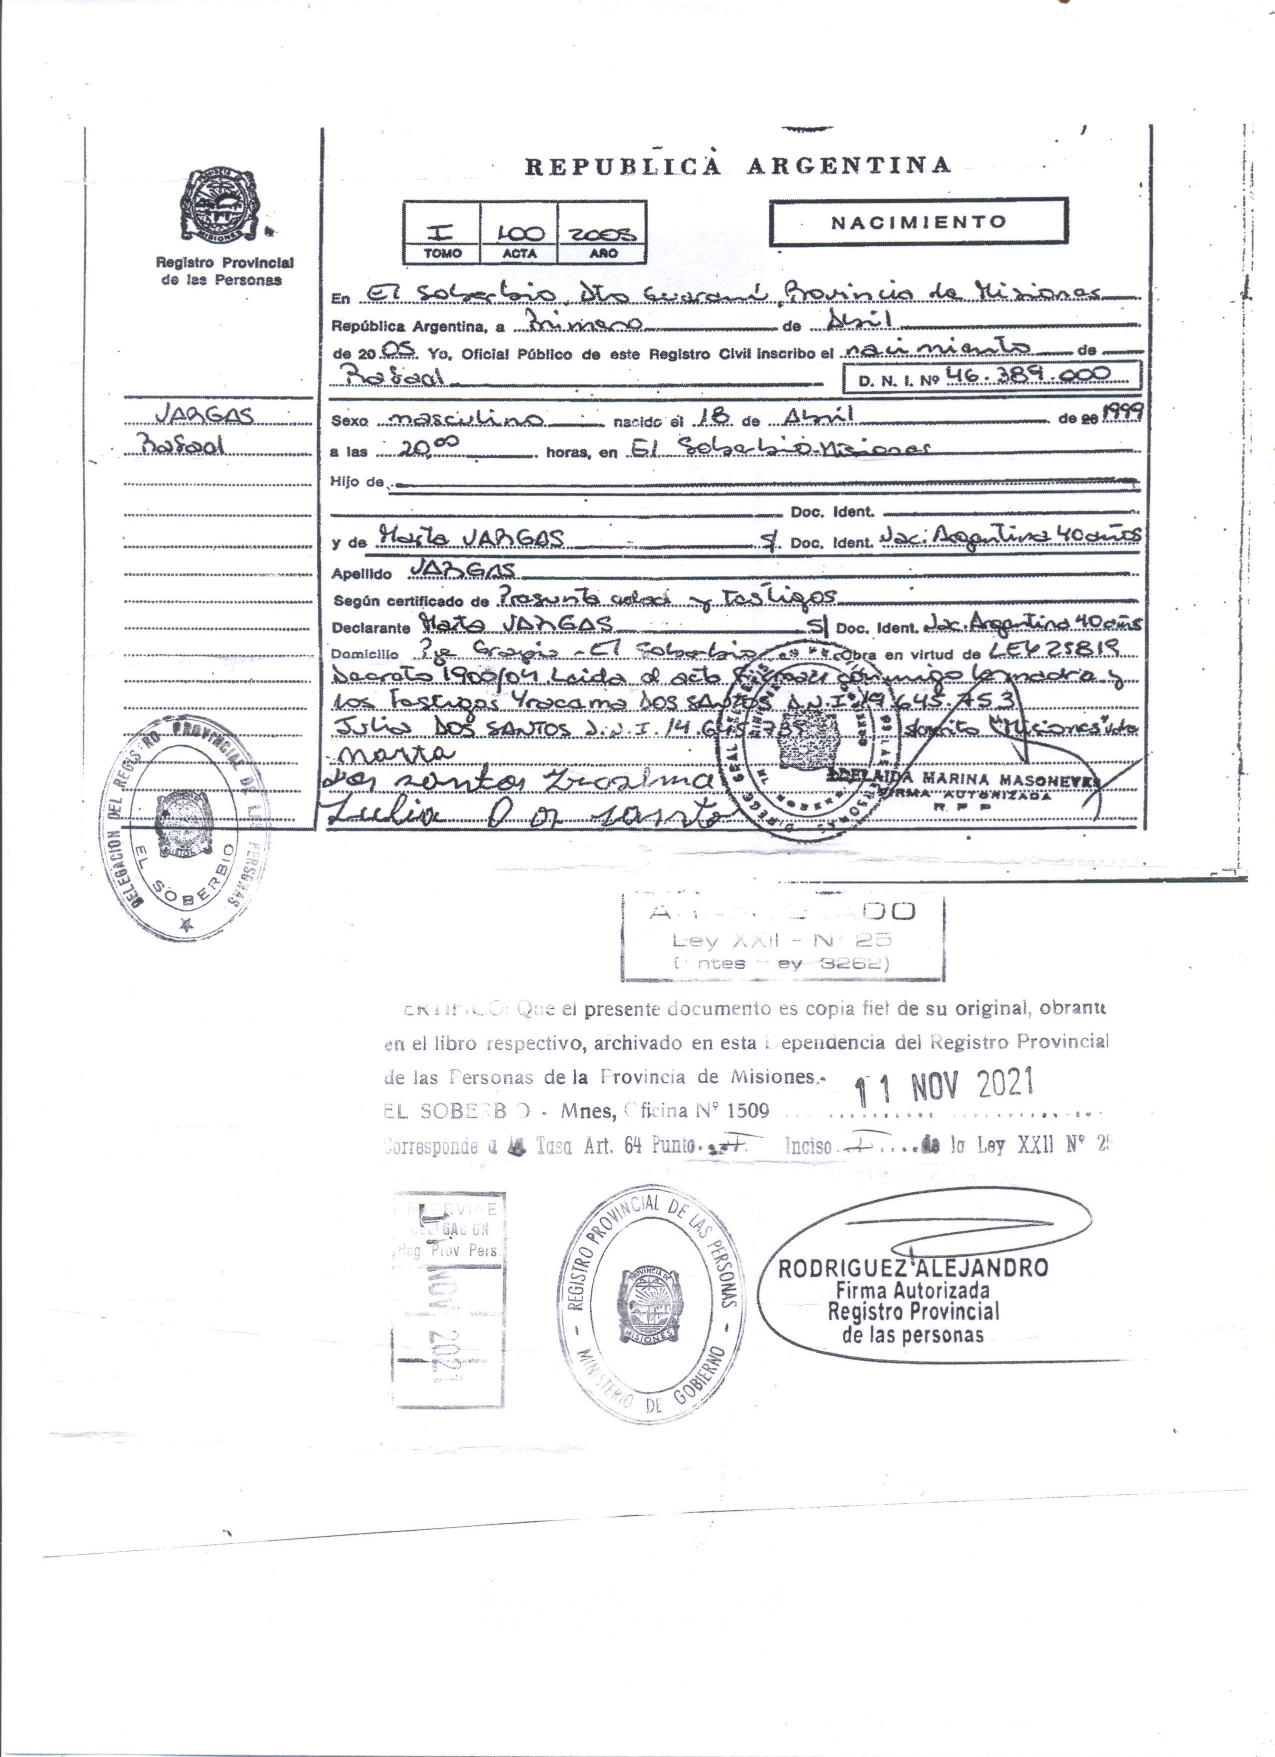 REPUBLICA ARGENTINA
I 100 2005
TOMO ACTA AÑO
NACIMIENTO
PROVINCIA DE MISIONES
Registro Provincial
de las Personas
En El Soberbio, Dto Guaraní, Provincia de Misiones
República Argentina, a Primero de Abril
de 2005. Yo, Oficial Público de este Registro Civil inscribo el nacimiento de
Rafael D. N. I. Nº 46.389.000
VARGAS
Rafael
Sexo masculino nacido el 18 de Abril de 1999
a las 20,00 horas, en El Soberbio-Misiones
Hijo de
Doc. Ident.
y de Marta VARGAS S/ Doc. Ident. Nac: Argentina 40 años
Apellido VARGAS
Según certificado de Presunta edad y Testigos
Declarante Marta VARGAS S/ Doc. Ident. Nac. Argentina 40 años
Domicilio El Soberbio Obra en virtud de LEY 25819
Decreto 1900/04 Leida el acta conmigo la madre y
los Testigos DOS SANTOS D.N.I. 645.753
Julio DOS SANTOS D.N.I. 14.645. "Misiones"
marta
Dos santos
Julio
ADELAIDA MARINA MASONEVE
FIRMA AUTORIZADA
R. P. P.
DELEGACION DEL REGISTRO PROVINCIAL DE LAS PERSONAS
EL SOBERBIO
Ley XXII - Nº 25
(Antes Ley 3262)
CERTIFICO: Que el presente documento es copia fiel de su original, obrante
en el libro respectivo, archivado en esta Dependencia del Registro Provincial
de las Personas de la Provincia de Misiones.-
11 NOV 2021
EL SOBERBIO - Mnes, Oficina Nº 1509
Corresponde a la Tasa Art. 64 Punto Inciso de la Ley XXII Nº 25
DELEGACION
Reg Prov Pers.
11 NOV 2021
REGISTRO PROVINCIAL DE LAS PERSONAS
PROVINCIA DE MISIONES
MINISTERIO DE GOBIERNO
RODRIGUEZ ALEJANDRO
Firma Autorizada
Registro Provincial
de las personas